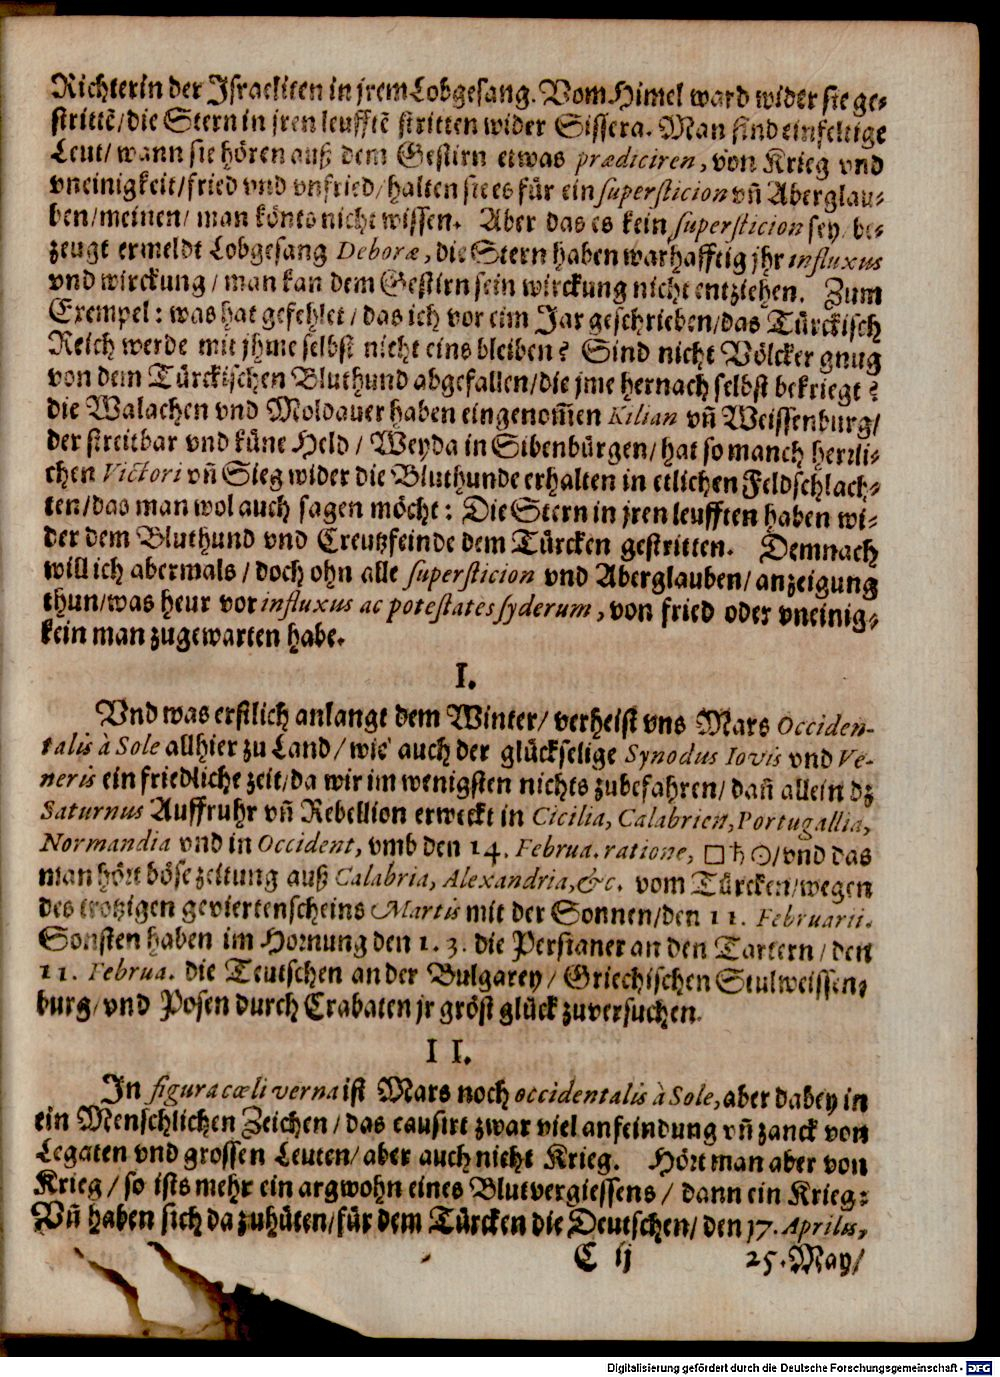 Richterin der Israeliten in jrem Lobgesang. Vom Himel ward wider sie ge-
strittē/die Stern in jren leufftē stritten wider Sissera. Man find einfeltige
Leut/ wann sie hören auß dem Gestirn etwas prædiciren, von Krieg vnd
vneinigkeit/fried vnd vnfried/halten sie es für ein supersticion vñ Aberglau-
ben/meinen/ man könts nicht wissen. Aber das es kein supersticion sey/be-
zeugt ermeldt Lobgesang Deboræ, die Stern haben warhafftig jhr influxus
vnd wirckung/ man kan dem Gestirn sein wirckung nicht entziehen. Zum
Exempel: was hat gefehlet/ das ich vor eim Jar geschrieben/das Türckisch
Reich werde mit jhme selbst nicht eins bleiben? Sind nicht Völcker gnug
von dem Türckischen Bluthund abgefallen/die jme hernach selbst bekriegt?
die Walachen vnd Moldauer haben eingenom̃en Kilian vñ Weissenburg/
der streitbar vnd küne Held/ Weyda in Sibenbürgen/ hat so manch herrli-
chen Victori vñ Sieg wider die Bluthunde erhalten in etlichen Feldschlach-
ten/das man wol auch sagen möcht: Die Stern in jren leufften haben wi-
der dem Bluthund vnd Creutzfeinde dem Türcken gestritten. Demnach
will ich abermals/ doch ohn alle supersticion vnd Aberglauben/ anzeigung
thun/was heur vor influxus ac potestates syderum, von fried oder vneinig-
kein man zugewarten habe.
I.
Vnd was erstlich anlangt dem Winter/ verheist vns Mars Occiden-
talis à Sole allhier zu Land/ wie auch der glückselige Synodus Iovis vnd Ve-
neris ein friedliche zeit/da wir im wenigsten nichts zubefahren/ dañ allein dz
Saturnus Auffruhr vñ Rebellion erweckt in Cicilia, Calabrien, Portugallia,
Normandia vnd in Occident, vmb den 14. Februa. ratione, □ ♄ ☉/vnd das
man hört böse zeitung auß Calabria, Alexandria, &c. vom Türcken/wegen
des trotzigen geviertenscheins Martis mit der Sonnen/den 11. Februarii.
Sonsten haben im Hornung den 1. 3. die Persianer an den Tartern/ den
11. Februa. die Teutschen an der Bulgarey/ Griechischen Stulweissen-
burg/vnd Posen durch Crabaten jr gröst glück zuversuchen.
II.
In figura cœli verna ist Mars noch occidentalis à Sole, aber dabey in
ein Menschlichen Zeichen/ das causirt zwar viel anfeindung vñ zanck von
Legaten vnd grossen Leuten/ aber auch nicht Krieg. Hört man aber von
Krieg/ so ists mehr ein argwohn eines Blutvergiessens/ dann ein Krieg:
Vñ haben sich da zuhüten/für dem Türcken die Deutschen/ den 17. Aprilis,
C ij 25. May/
Digitalisierung gefördert durch die Deutsche Forschungsgemeinschaft - DFG